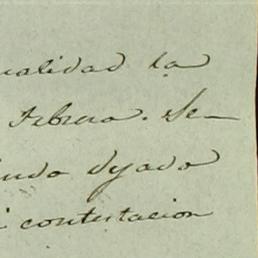 ualidad la
Febrero. Se–
endo dejado
i contestacion